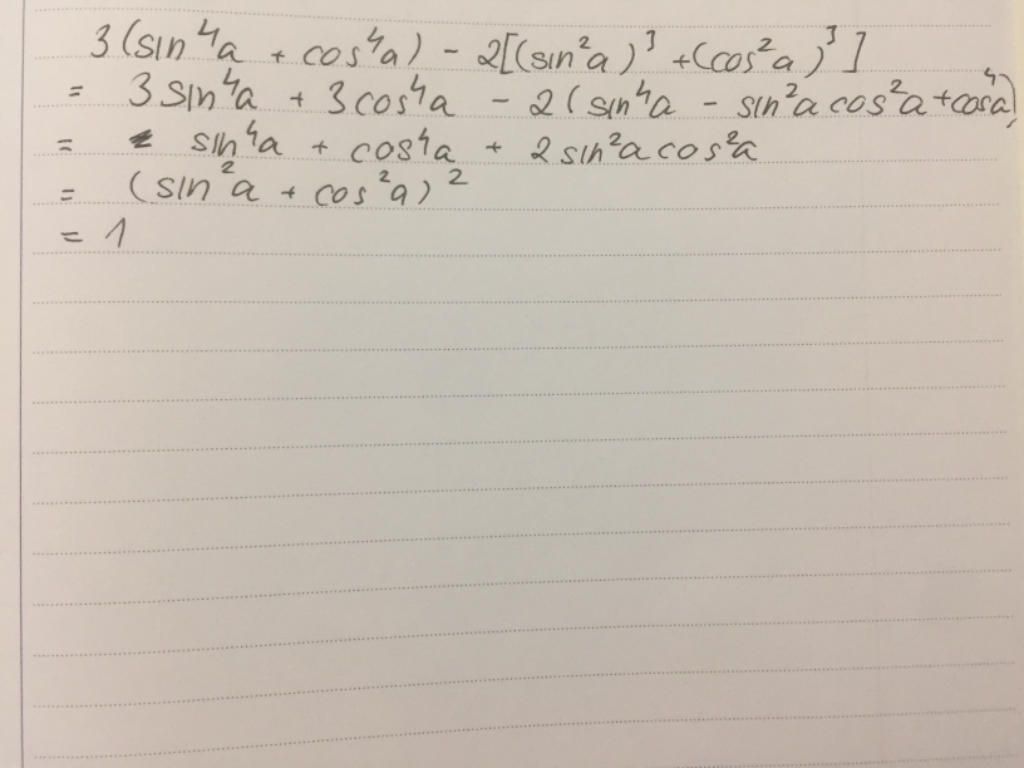 3(sin⁴a + cos⁴a) - 2[(sin²a)³ + (cos²a)³]
= 3sin⁴a + 3cos⁴a - 2(sin⁴a - sin²a cos²a + cos⁴a)
= sin⁴a + cos⁴a + 2sin²a cos²a
= (sin²a + cos²a)²
= 1